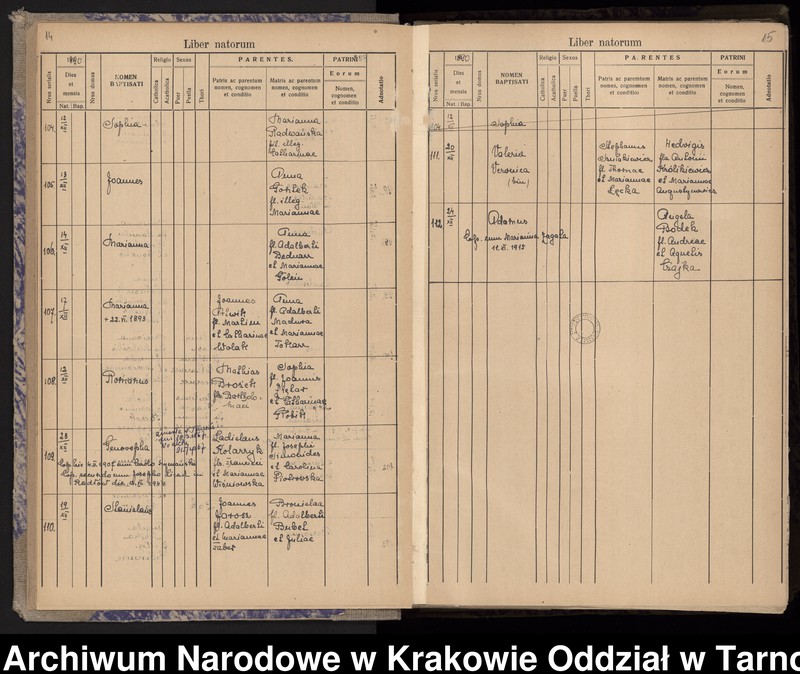 14
Liber natorum
1890
Nrus serialis
Dies et mensis
Nat. Bap.
Nrus domus
NOMEN BAPTISATI
Religio
Catholica
Acatholica
Sexus
Puer
Puella
Thori
PARENTES.
Patris ac parentum nomen, cognomen et conditio
Matris ac parentum nomen, cognomen et conditio
PATRINI
Eorum
Nomen, cognomen et conditio
Adnotatio
104.
12
XII
Sophia
Marianna
Radwańska
fil. illeg.
Catharinae
105.
13
XII
Joannes
Anna
fl. illeg.
Mariannae
106.
14
XII
Marianna
Anna
fl. Adalberti
Bednarz
et Mariannae
107.
17
XII
Marianna
+ 22.VI.1893
Joannes
fl. Martini
et Catharinae
Wolak
Anna
fl. Adalberti
Madura
et Mariannae
Tokarz
108.
12
XII
Romanus
Mathias
Brosek
Sophia
fl. Joannis
et Catharinae
109.
28
XII
Genovepha
Ladislaus
Kolarzyk
fil. Francisci
et Mariannae
Wiśniowska
Marianna
fl. Josephi
et Carolina
Piotrowska
110.
19
XII
Stanislaus
Joannes
Jarosz
fl. Adalberti
et Mariannae
Bronislaa
fl. Adalberti
Bubel
et Juliae
15
Liber natorum
1890
Nrus serialis
Dies et mensis
Nat. Bap.
Nrus domus
NOMEN BAPTISATI
Religio
Catholica
Acatholica
Sexus
Puer
Puella
Thori
PARENTES
Patris ac parentum nomen, cognomen et conditio
Matris ac parentum nomen, cognomen et conditio
PATRINI
Eorum
Nomen, cognomen et conditio
Adnotatio
104.
12
XII
Sophia
111.
20
XI
Valeria
Veronica
(bin)
Stephanus
fl. Thomae
et Mariannae
Łęcka
Hedvigis
fla Antonii
Królikiewicz
et Mariannae
Augustynowicz
112.
24
XII
Adamus
Cop. cum Marianna Zagała
11.VI.1912
Angela
Bodek
fl. Andreae
et Agnetis
Czajka
Archiwum Narodowe w Krakowie Oddział w Tarno